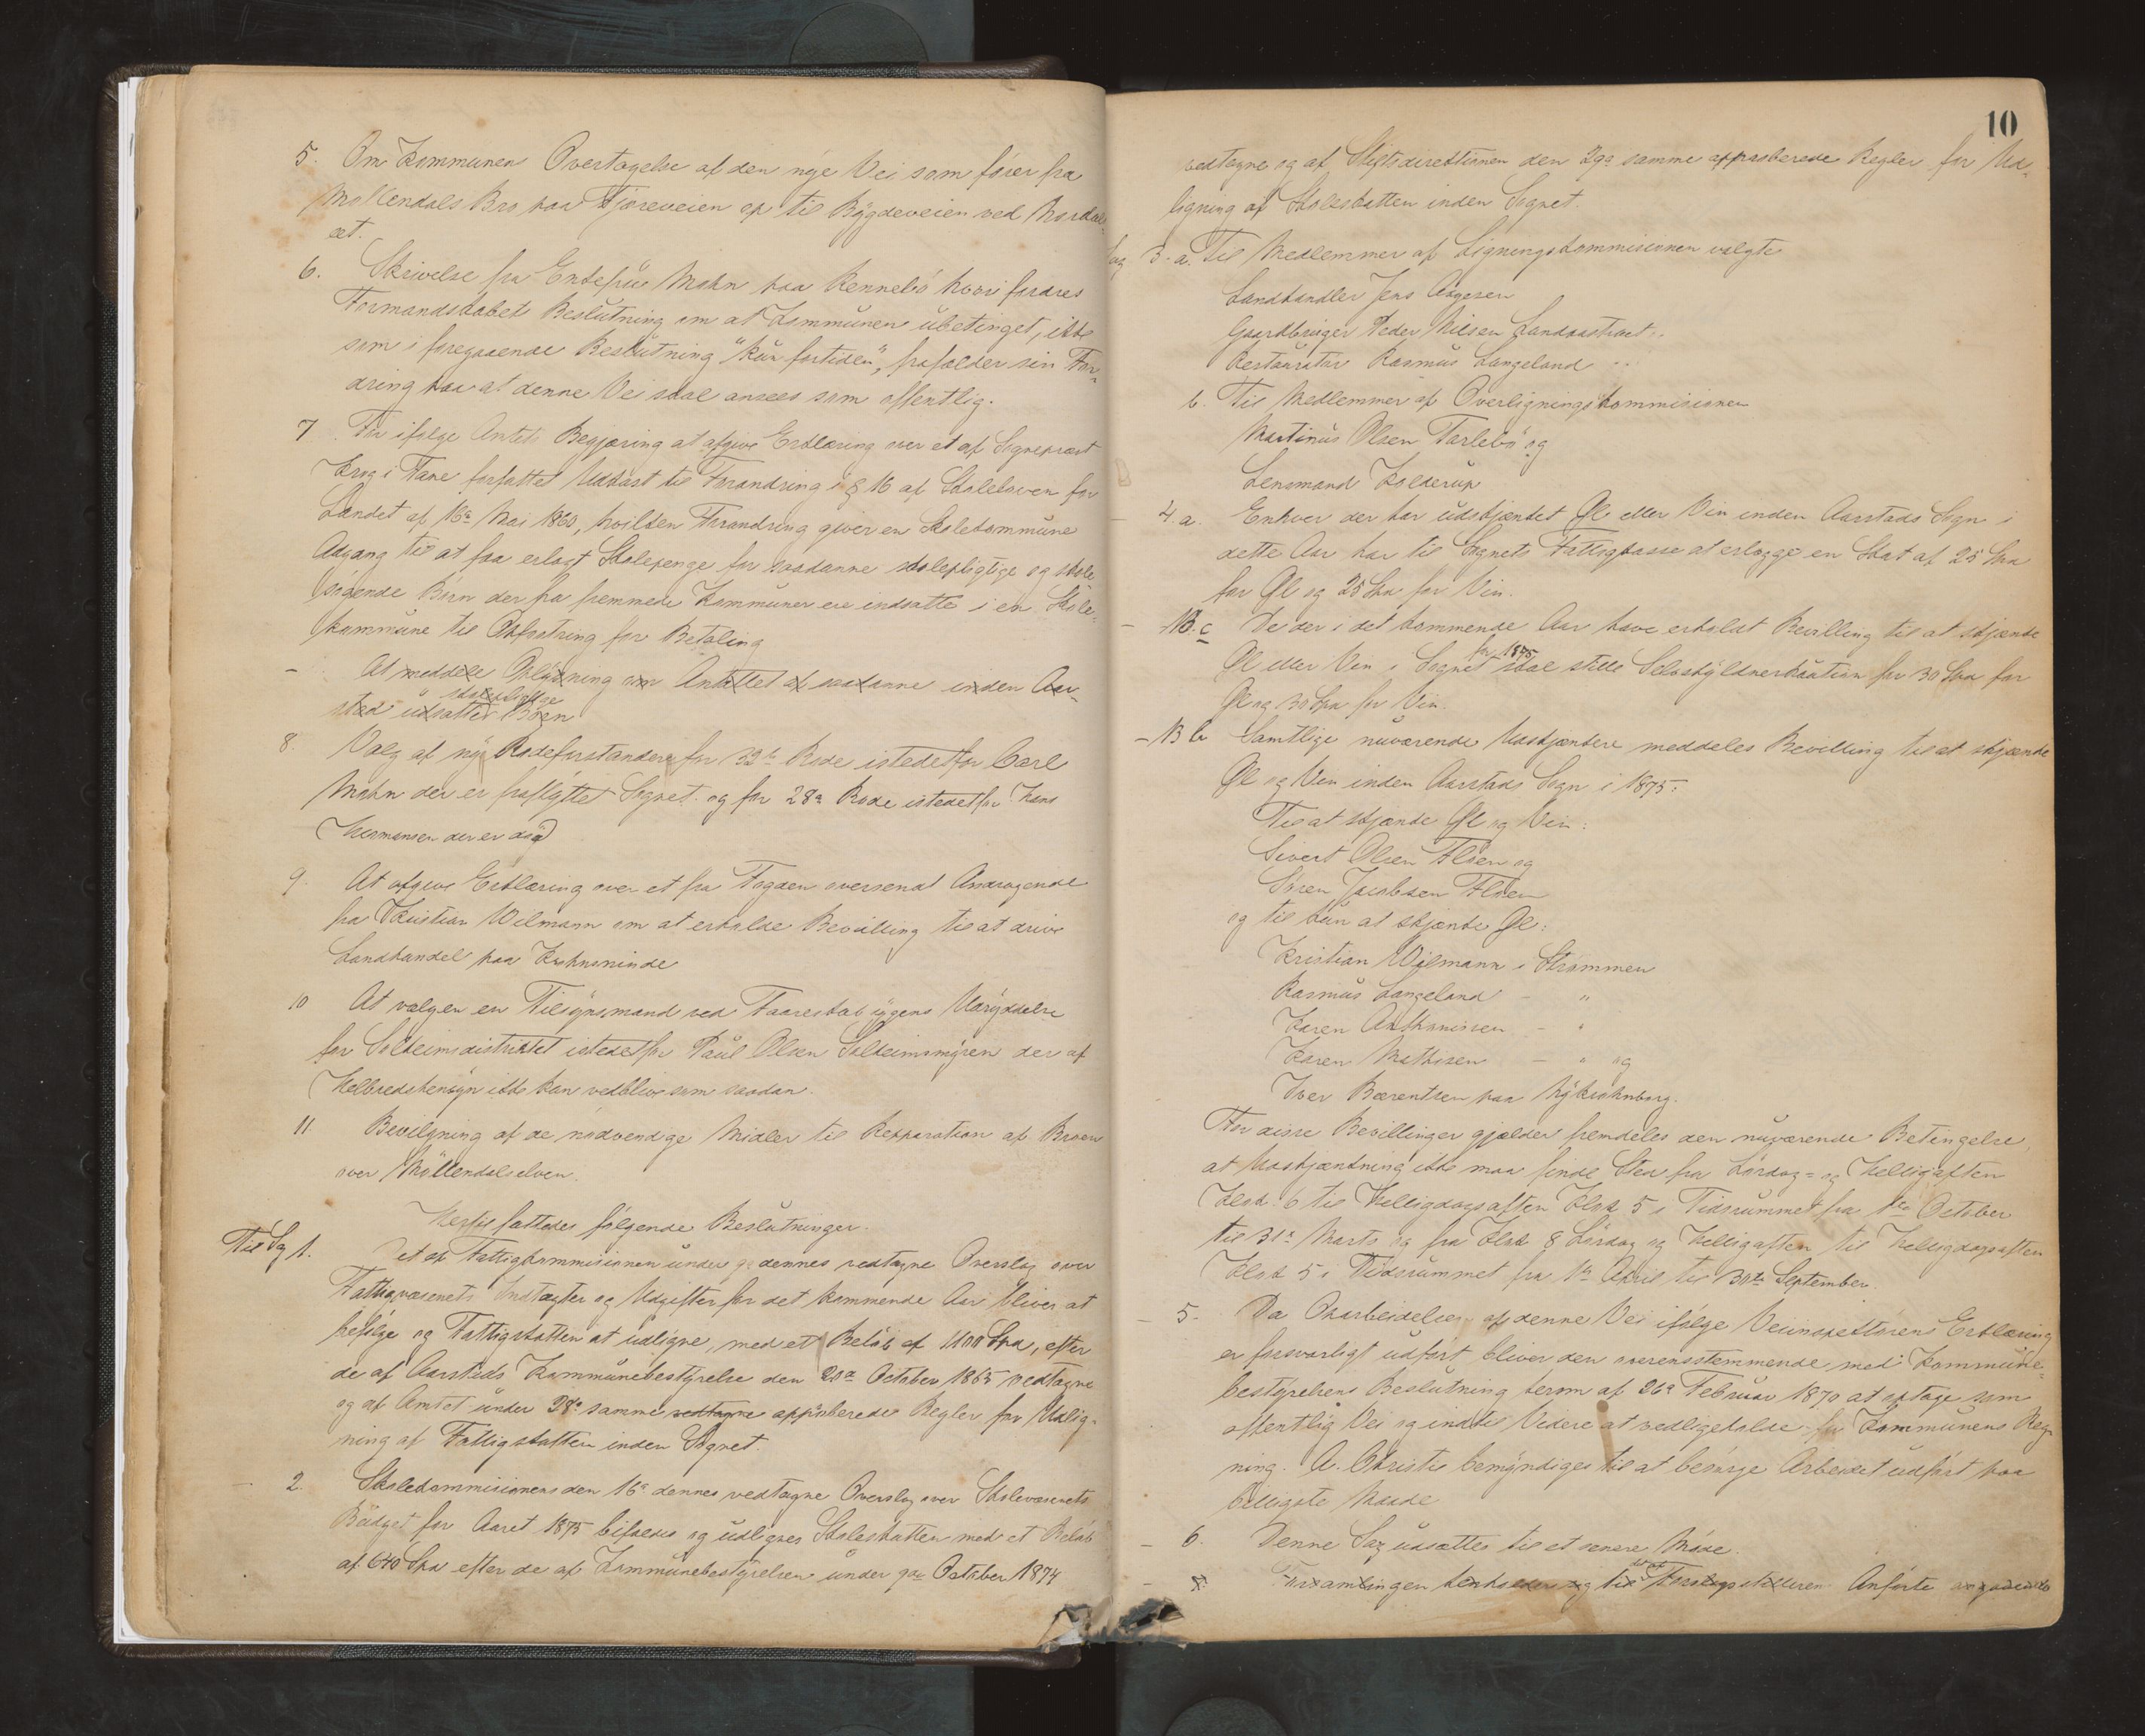 5. Om Kommunens Overtagelse af den nye Vei som fører fra
Møllendals Bro paa Fjøreveien op til Bygdeveien ved Nordal-
et.
6. Skrivelse fra Enkefru Mohn paa Kennebø hvori fordres
Formandskabets Beslutning om at Kommunen ubetinget, ikke
som i foregaaende Beslutning "kun fortiden", frafalder sin For-
dring paa at denne Vei skal ansees som offentlig.
7. For ifølge Amtets Begjæring at afgive Erklæring over et af Sognepræst
Krog i Fane forfattet Udkast til Forandring i § 16 af Skoleloven for
Landet af 16de Mai 1860, hvilken Forandring giver en Skolekommune
Adgang til at faa erlagt Skolepenge for saadanne skolepligtige og skole-
søgende Børn der fra fremmede Kommuner ere indsatte i en Skole-
kommune til Opfostring for Betaling
- At meddele Oplysning om Antallet af saadanne inden Aar-
stad udsatte skolepligtige Børn
8. Valg af ny Rodeforstandere for 32te Rode istedetfor Carl
Mohn der er fraflyttet Sognet og for 28de Rode istedetfor Hans
Hermansen der er død
9. At afgive Erklæring over et fra Fogden oversendt Andragende
fra Kristian Wilmann om at erholde Bevilling til at drive
Landhandel paa Krohnsminde
10 At vælgen en Tilsynsmand ved Faareskabsygens Udryddelse
for Solheimsdistriktet istedetfor Paul Olsen Solheimsmyren der af
Helbredshensyn ikke kan vedblive som saadan.
11. Bevilgning af de nødvendige Midler til Repparation af Broen
over Møllendalselven.
Herpaa fattedes følgende Beslutninger.
Til Sag 1. Det af Fattigkommisionen under 9de dennes vedtagne Overslag over
Fattigvæsenets Indtægter og Udgifter for det kommende Aar bliver at
befølge og Fattigskatten at udligne, med et Beløb af 1100 Spd, efter
de af Aarstads Kommunebestyrelse den 20de October 1865 vedtagne
og af Amtet under 28de samme vedtagne approberede Regler for Udlig-
ning af Fattigskatten inden Sognet.
2. Skolekommisionens den 16de dennes vedtagne Overslag over Skolevæsenets
Budget for Aaret 1875 bifaldes og udlignes Skoleskatten med et Beløb
af 640 Spd efter de af Kommunebestyrelsen under 9de October 1874
10
vedtagne og af Stiftsdirektionen den 29de samme approberede Regler for Ud-
ligning af Skoleskatten inden Sognet.
Sag 3. a. Til Medlemmer af Ligningskommisionen valgte
Landhandler Jens Aagesen
Gaardbruger Peder Nilsen Landaastræet
Restauratør Rasmus Langeland
b. Til Medlemmer af Overligningskommisionen
Martinus Olsen Tarlebø og
Lensmand Kolderup
4. a. Enhver der har udskjænket Øl eller Vin inden Aarstads Sogn i
dette Aar har til Sognets Fattigkasse at erlægge en Skat af 25 Spd
for Øl og 25 Spd for Vin.
c De der i det kommende Aar have erholdt Bevilling til at skjænke
Øl eller Vin i Sognet for 1875 skal stille Selvskyldnerkaution for 30 Spd for
Øl og 30 Spd for Vin.
b Samtlige nuværende Udskjænkere meddeles Bevilling til at skjænke
Øl og Vin inden Aarstads Sogn i 1875:
Til at skjænke Øl og Vin:
Sivert Olsen Floen og
Søren Jacobsen Floen
og til kun at skjænke Øl:
Kristian Wilmann i Strømmen
Rasmus Langeland - "
Karen Anthonisen - "
Karen Mathisen - " og
Iver Bærentsen paa Nykrohnborg.
For disse Bevillinger gjælder fremdeles den nuværende Betingelse,
at Udskjænkning ikke maa finde Sted fra Lørdag- og Helligaften
Klok. 6 til Helligdagsaften Klok 5 i Tidsrummet fra 1ste October
til 31te Marts og fra Klok 8 Lørdag og Helligaften til Helligdagsaften
Klok 5 i Tidsrummet fra 1ste April til 30te September.
5. Da Oparbeidelsen af denne Vei ifølge Veiinspektørens Erklæring
er forsvarligt udført bliver den overensstemmende med Kommune-
bestyrelsens Beslutning herom af 26de Februar 1870 at optage som
offentlig Vei og indtil Videre at vedligeholde for Kommunens Reg-
ning. A. Christie bemyndiges til at besørge Arbeidet udført paa
billigste Maade
6. Denne Sag udsættes til et senere Møde.
7. Forsamlingen henholder sig til det af Forslagsstilleren Anførte